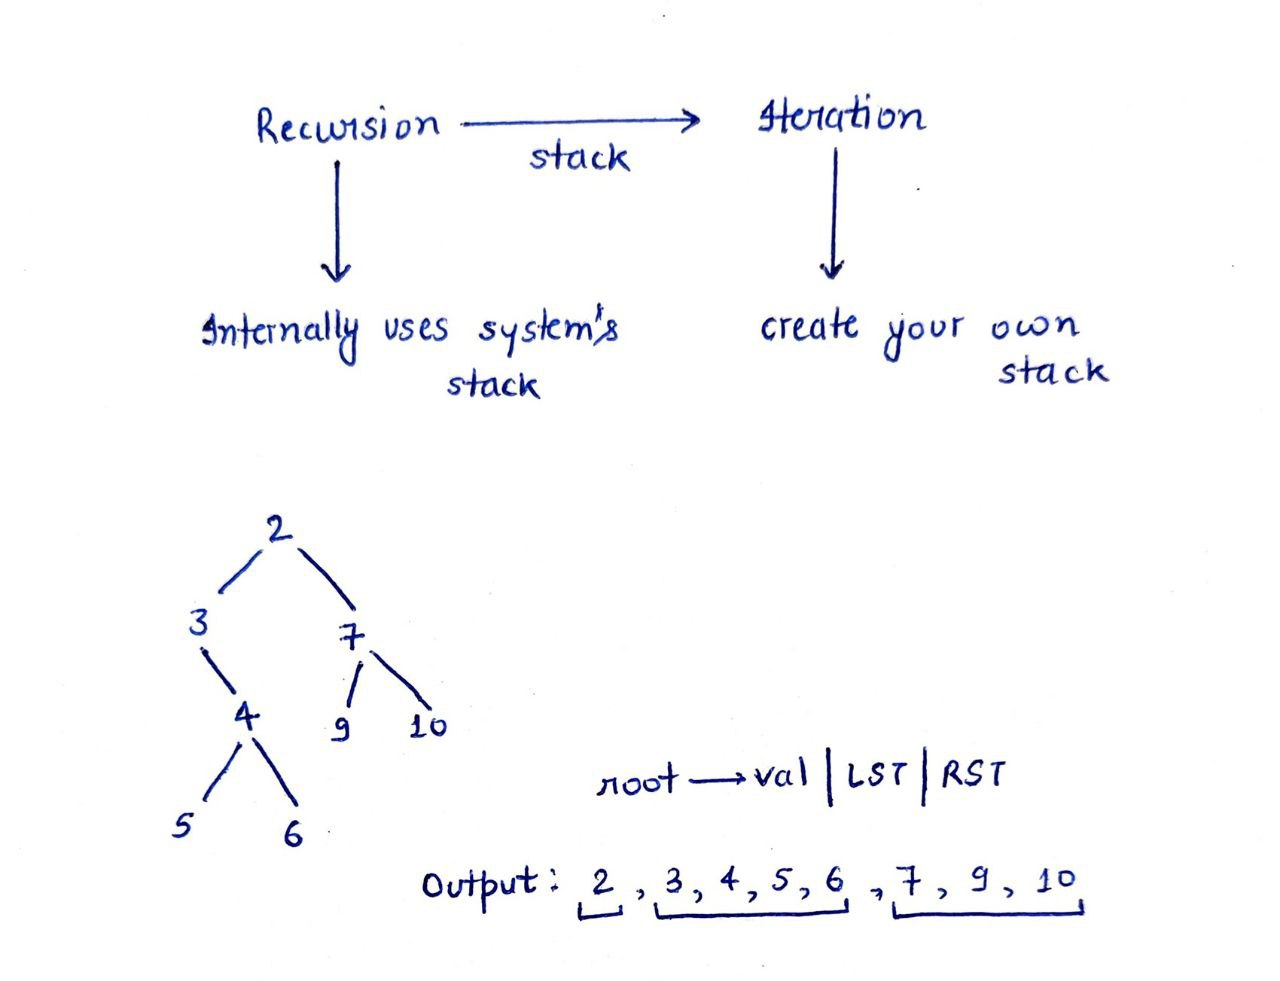 Recursion → Iteration
stack
Internally uses system's
stack
create your own
stack
2
3 7
4 9 10
5 6
root → val | LST | RST
Output: 2, 3, 4, 5, 6, 7, 9, 10